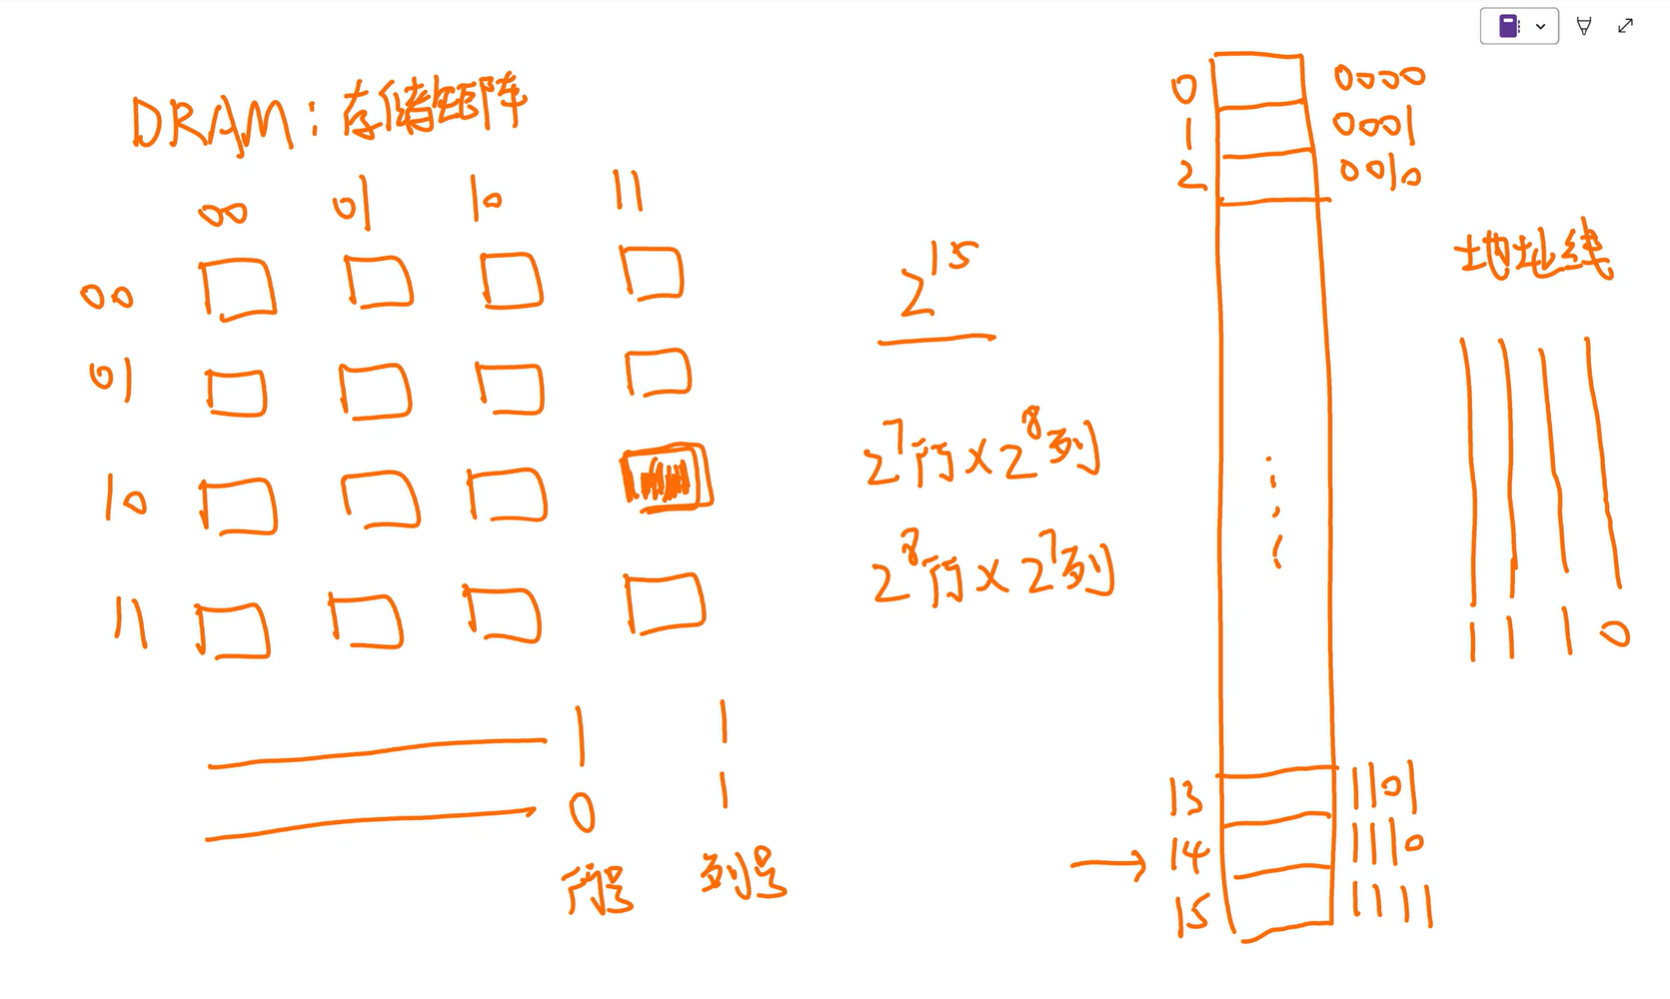 DRAM：存储矩阵
00 01 10 11
00
01
10
11
1 1
0 1
行号 列号
2^15
2^7行×2^8列
2^8行×2^7列
0 0000
1 0001
2 0010
13 1101
→ 14 1110
15 1111
地址线
1 1 1 0